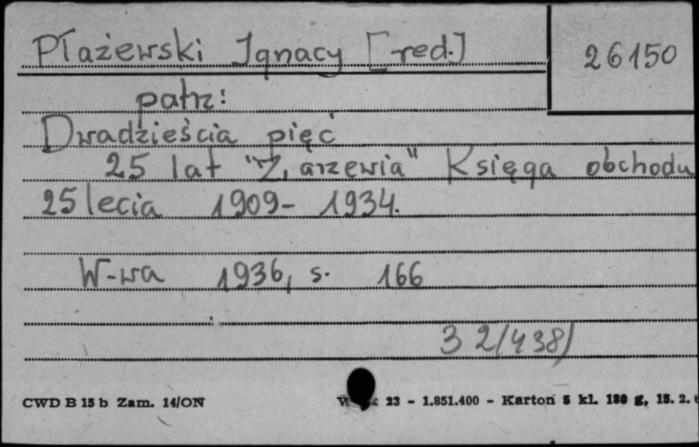 Płażewski Ignacy [red.]
26150
patrz:
Dwadzieścia pięć
25 lat "Zarzewia" Księga obchodu
25 lecia 1909- 1934.
W-wa 1936, s. 166
32/438/
CWD B 15 b Zam. 14/ON
23 - 1.851.400 - Karton 5 kl. 180 g, 15. 2.